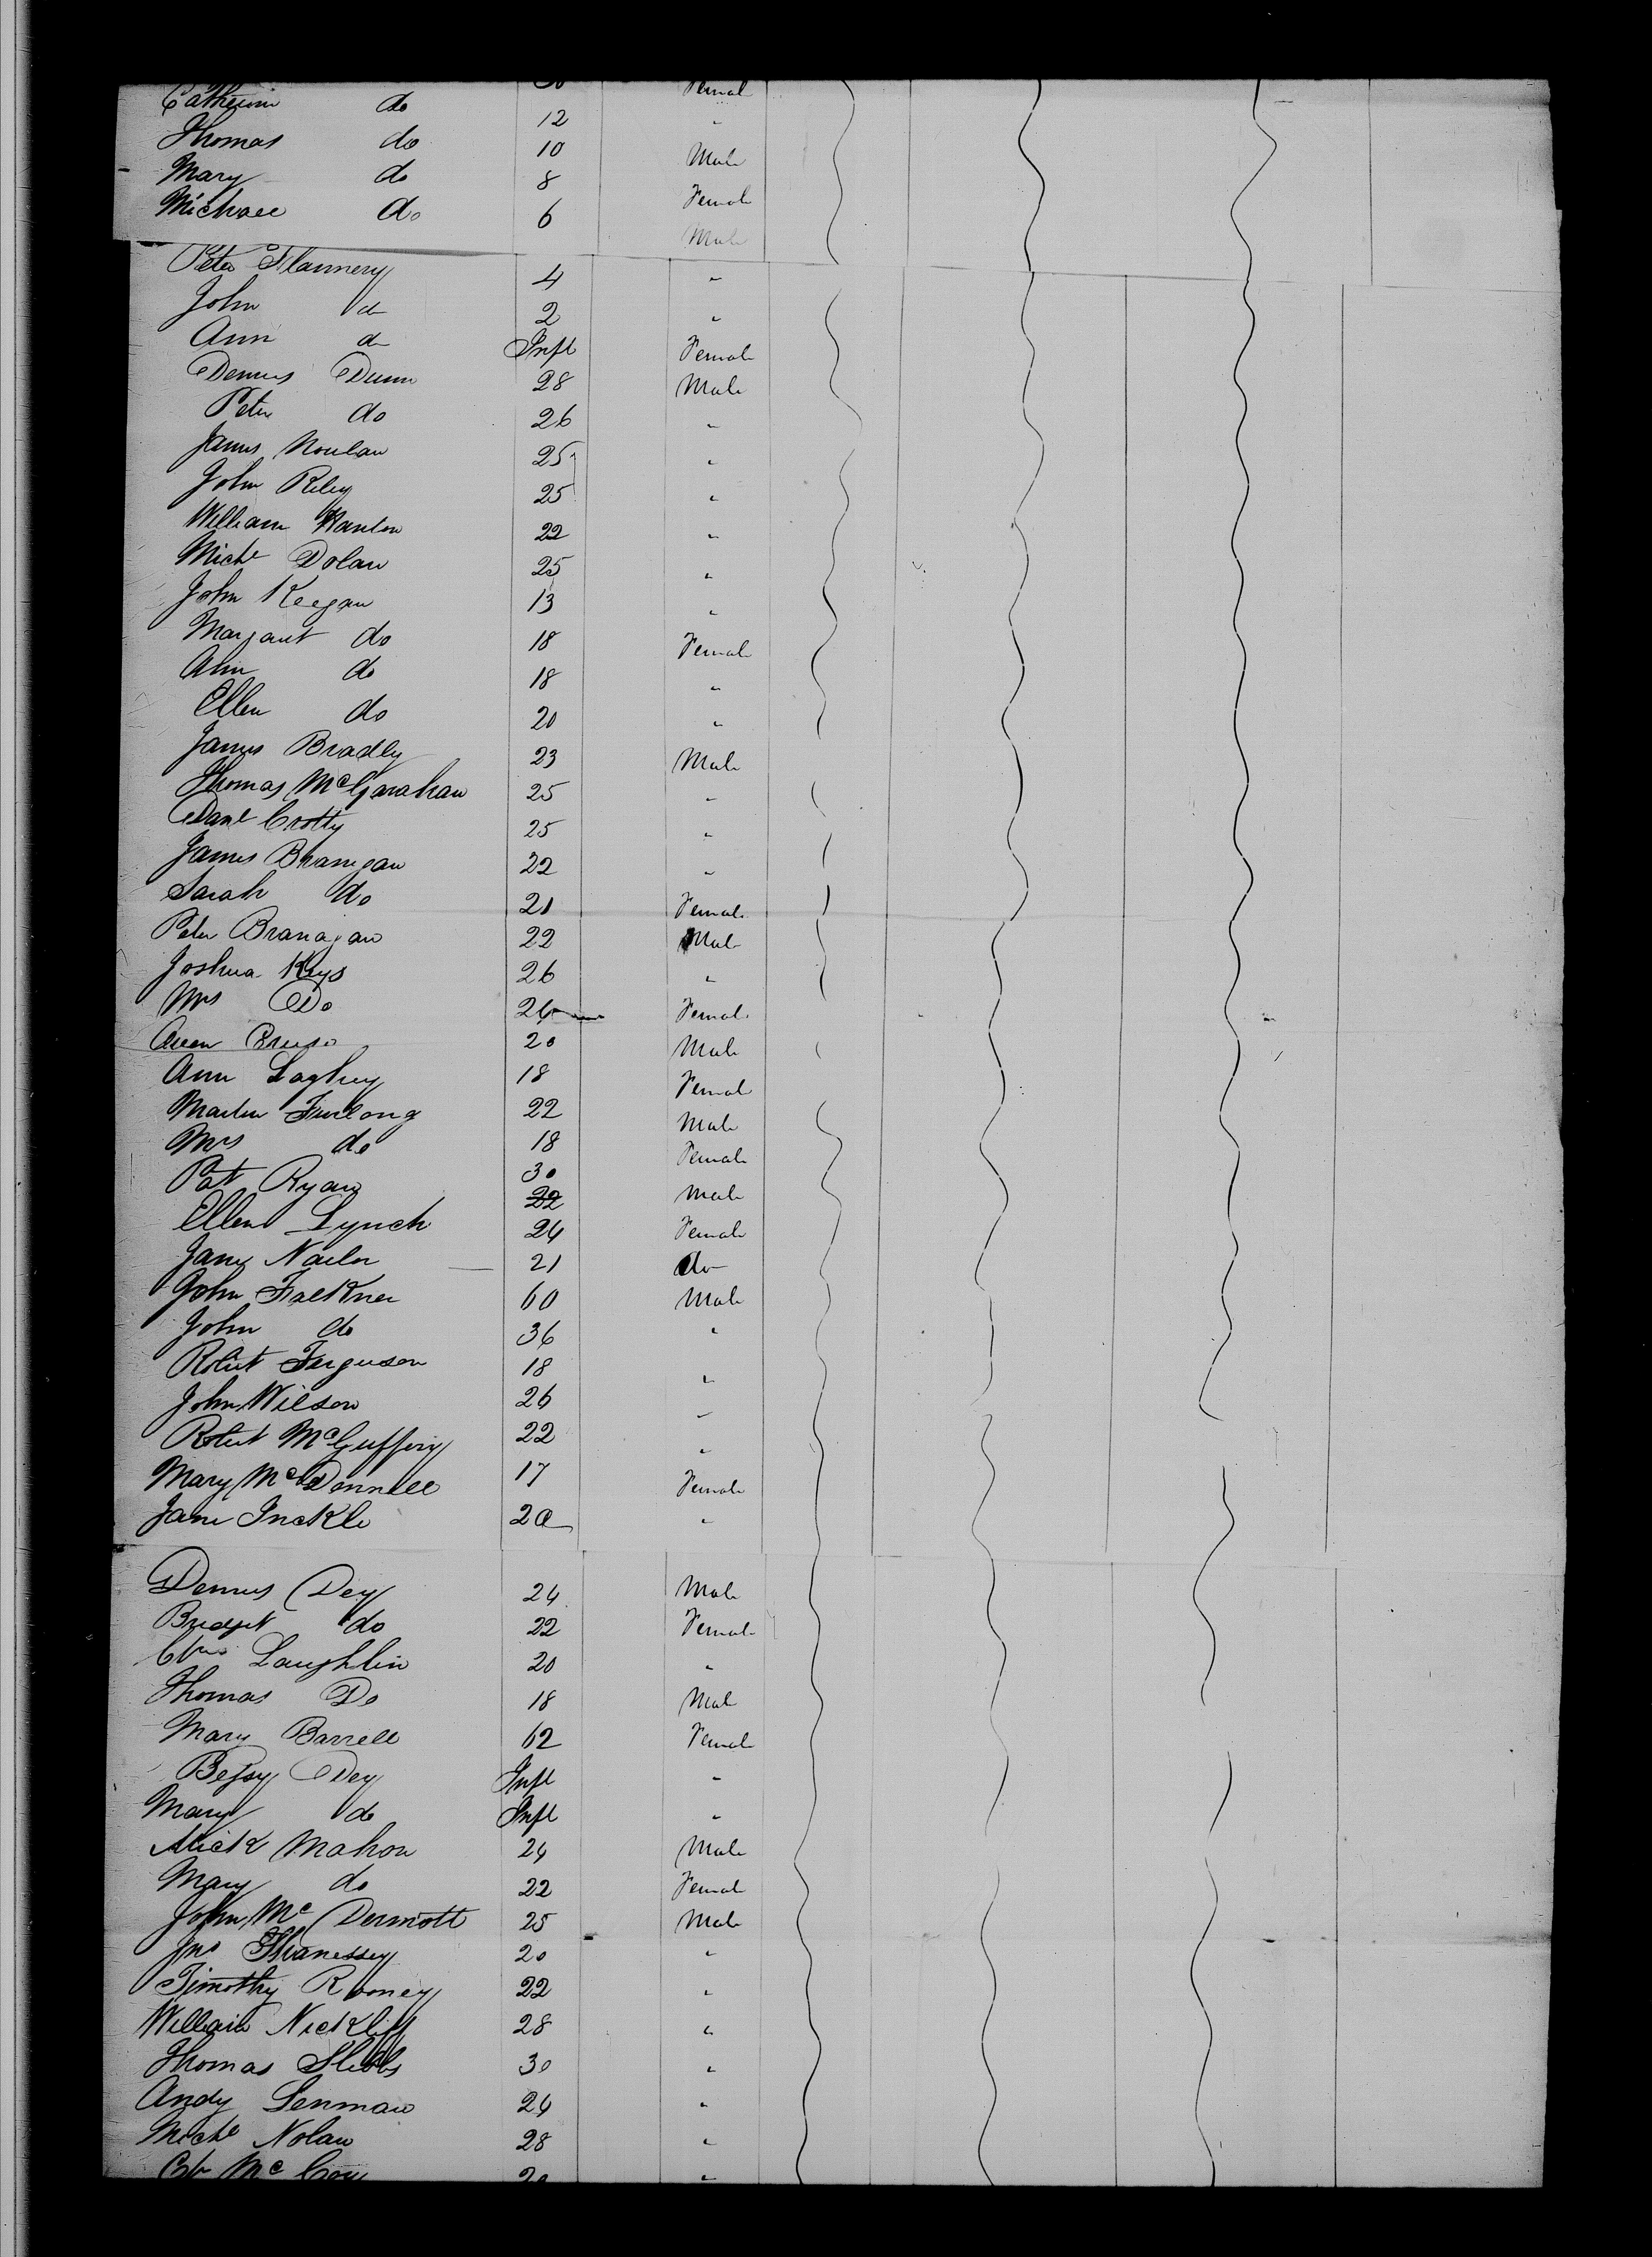 Female
Catherine do 12 "
Thomas do 10 Male
Mary do 8 Female
Michael do 6 Male
Peter Flannery 4 "
John do 2 "
Ann do Inft Female
Dennis Dunn 28 Male
Peter do 26 "
James Noulan 25 "
John Riley 25 "
William Hanlon 22 "
Michl Dolan 25 "
John Keegan 13 "
Margaret do 18 Female
Ann do 18 "
Ellen do 20 "
James Bradly 23 Male
Thomas McGarahan 25 "
Danl Crotty 25 "
James Branegan 22 "
Sarah do 21 Female
Peter Branagan 22 Male
Joshua Keys 26 "
Mrs Do 24 Female
Owen 20 Male
Ann Laghey 18 Female
Martin Furlong 22 Male
Mrs do 18 Female
Pat Ryan 30 22 Male
Ellen Lynch 24 Female
Jane Nailor 21 do
John Falkner 60 Male
John do 36 "
Robert Ferguson 18 "
John Wilson 26 "
Robert McGuffery 22 "
Mary McDonnell 17 Female
Jane Inckle 20 "
Dennis Dey 24 Male
Bridget do 22 Female
Laughlin 20 "
Thomas Do 18 Male
Mary Barrell 62 Female
Betsy Dey Inft "
Mary do Inft "
Mick Mahon 24 Male
Mary do 22 Female
John McDermott 25 Male
Jno 20 "
Timothy Rooney 22 "
William Nickliff 28 "
Thomas Stibbs 30 "
Andy Lenman 24 "
Michl Nolan 28 "
Mc 20 "